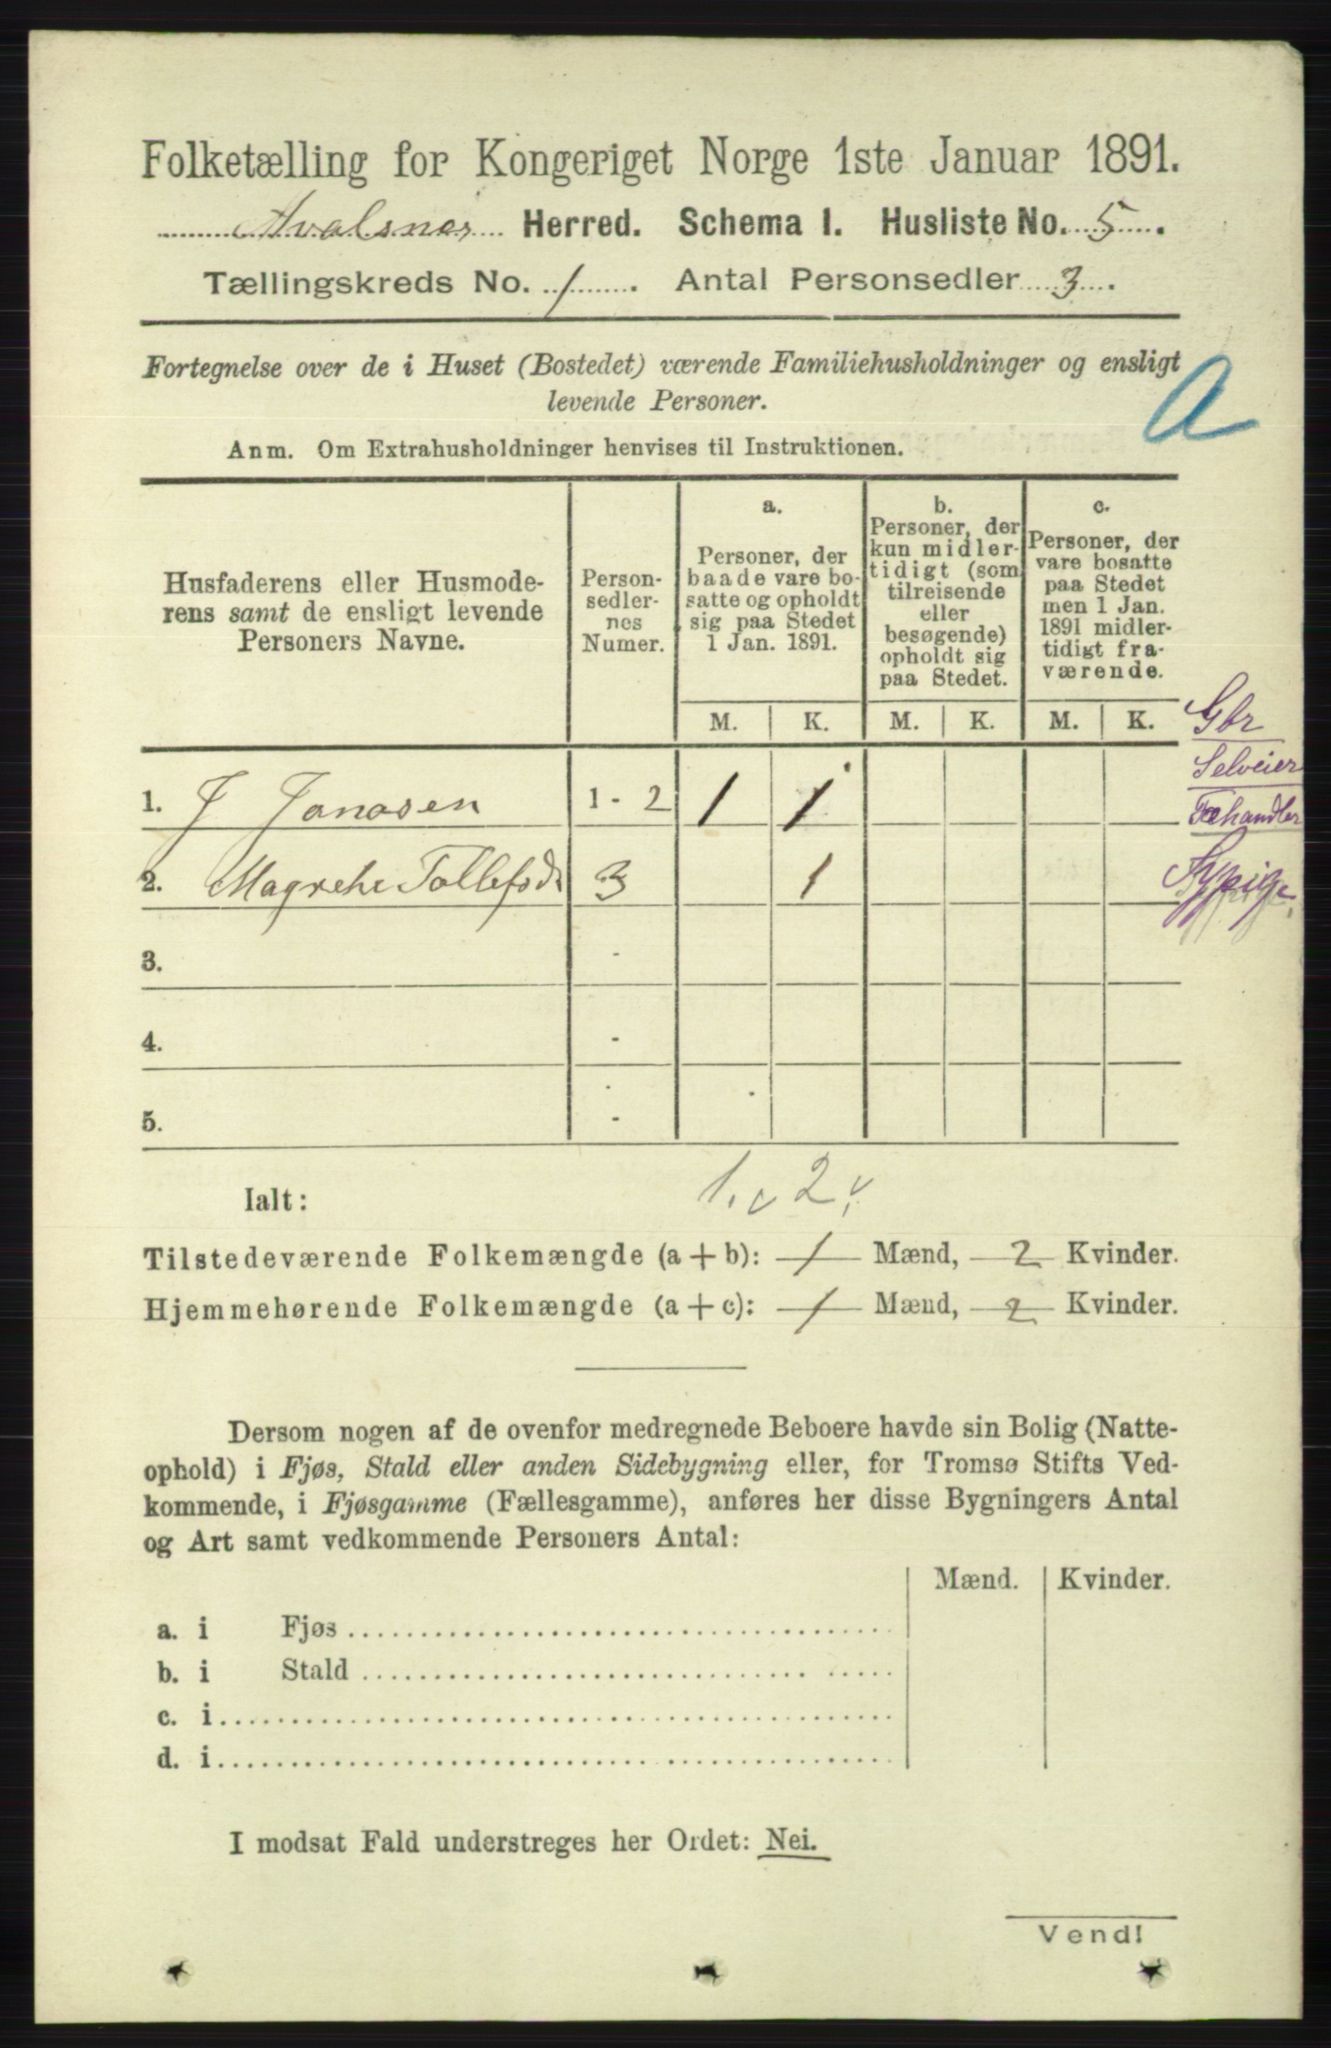 Folketælling for Kongeriget Norge 1ste Januar 1891.
Avalsnes Herred. Schema I. Husliste No. 5.
Tællingskreds No. 1. Antal Personsedler 3.
Fortegnelse over de i Huset (Bostedet) værende Familiehusholdninger og ensligt
levende Personer.
A
Anm. Om Extrahusholdninger henvises til Instruktionen.
Husfaderens eller Husmode-
rens samt de ensligt levende
Personers Navne.
Person-
sedler-
nes
Numer.
a.
Personer, der
baade vare bo-
satte og opholdt
sig paa Stedet
1 Jan. 1891.
b.
Personer, der
kun midler-
tidigt (som
tilreisende
eller
besøgende)
opholdt sig
paa Stedet.
c.
Personer, der
vare bosatte
paa Stedet
men 1 Jan.
1891 midler-
tidigt fra-
værende.
M. K. M. K. M. K.
Gbr
Selveier
1. J Janasen 1 - 2 1 1
Fæhandler
2. Magrehe Tollefsd. 3 1
Sypige
3. -
4. -
5. -
1. 2
Ialt:
Tilstedeværende Folkemængde (a + b): 1 Mænd, 2 Kvinder.
Hjemmehørende Folkemængde (a + c): 1 Mænd, 2 Kvinder.
Dersom nogen af de ovenfor medregnede Beboere havde sin Bolig (Natte-
ophold) i Fjøs, Stald eller anden Sidebygning eller, for Tromsø Stifts Ved-
kommende, i Fjøsgamme (Fællesgamme), anføres her disse Bygningers Antal
og Art samt vedkommende Personers Antal:
Mænd. Kvinder.
a. i Fjøs
b. i Stald
c. i
d. i
I modsat Fald understreges her Ordet: Nei.
Vend!